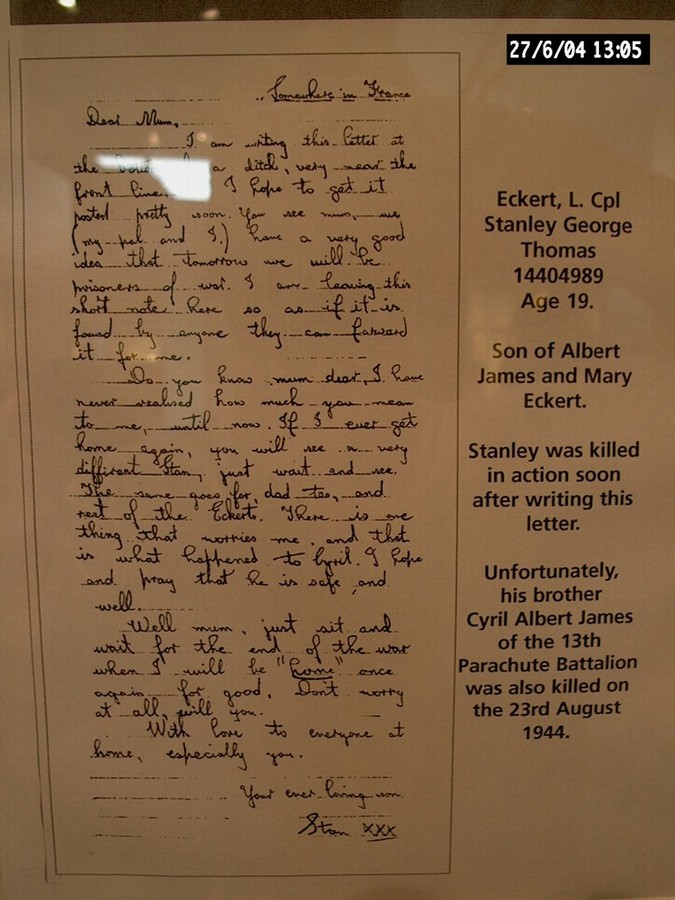 27/6/04 13:05
Somewhere in France
Dear Mum,
I am writing this letter at
the a ditch, very near the
front line. I hope to get it
posted pretty soon. You see mum, we
(my pal and I.) have a very good
idea that tomorrow we will be
prisoners of war. I am leaving this
short note here so as if it is
found by anyone they can forward
it for me.
Do you know mum dear, I have
never realised how much you mean
to me, until now. If I ever get
home again, you will see a very
different Stan, just wait and see.
The same goes for, dad too, and
rest of the Eckerts. There is one
thing that worries me, and that
is what happened to Cyril. I hope
and pray that he is safe, and
well.
Well mum, just sit and
wait for the end of the war
when I will be "home" once
again for good. Don't worry
at all, will you.
With love to everyone at
home, especially you.
Your ever loving son
Stan xxx
Eckert, L. Cpl
Stanley George
Thomas
14404989
Age 19.
Son of Albert
James and Mary
Eckert.
Stanley was killed
in action soon
after writing this
letter.
Unfortunately,
his brother
Cyril Albert James
of the 13th
Parachute Battalion
was also killed on
the 23rd August
1944.